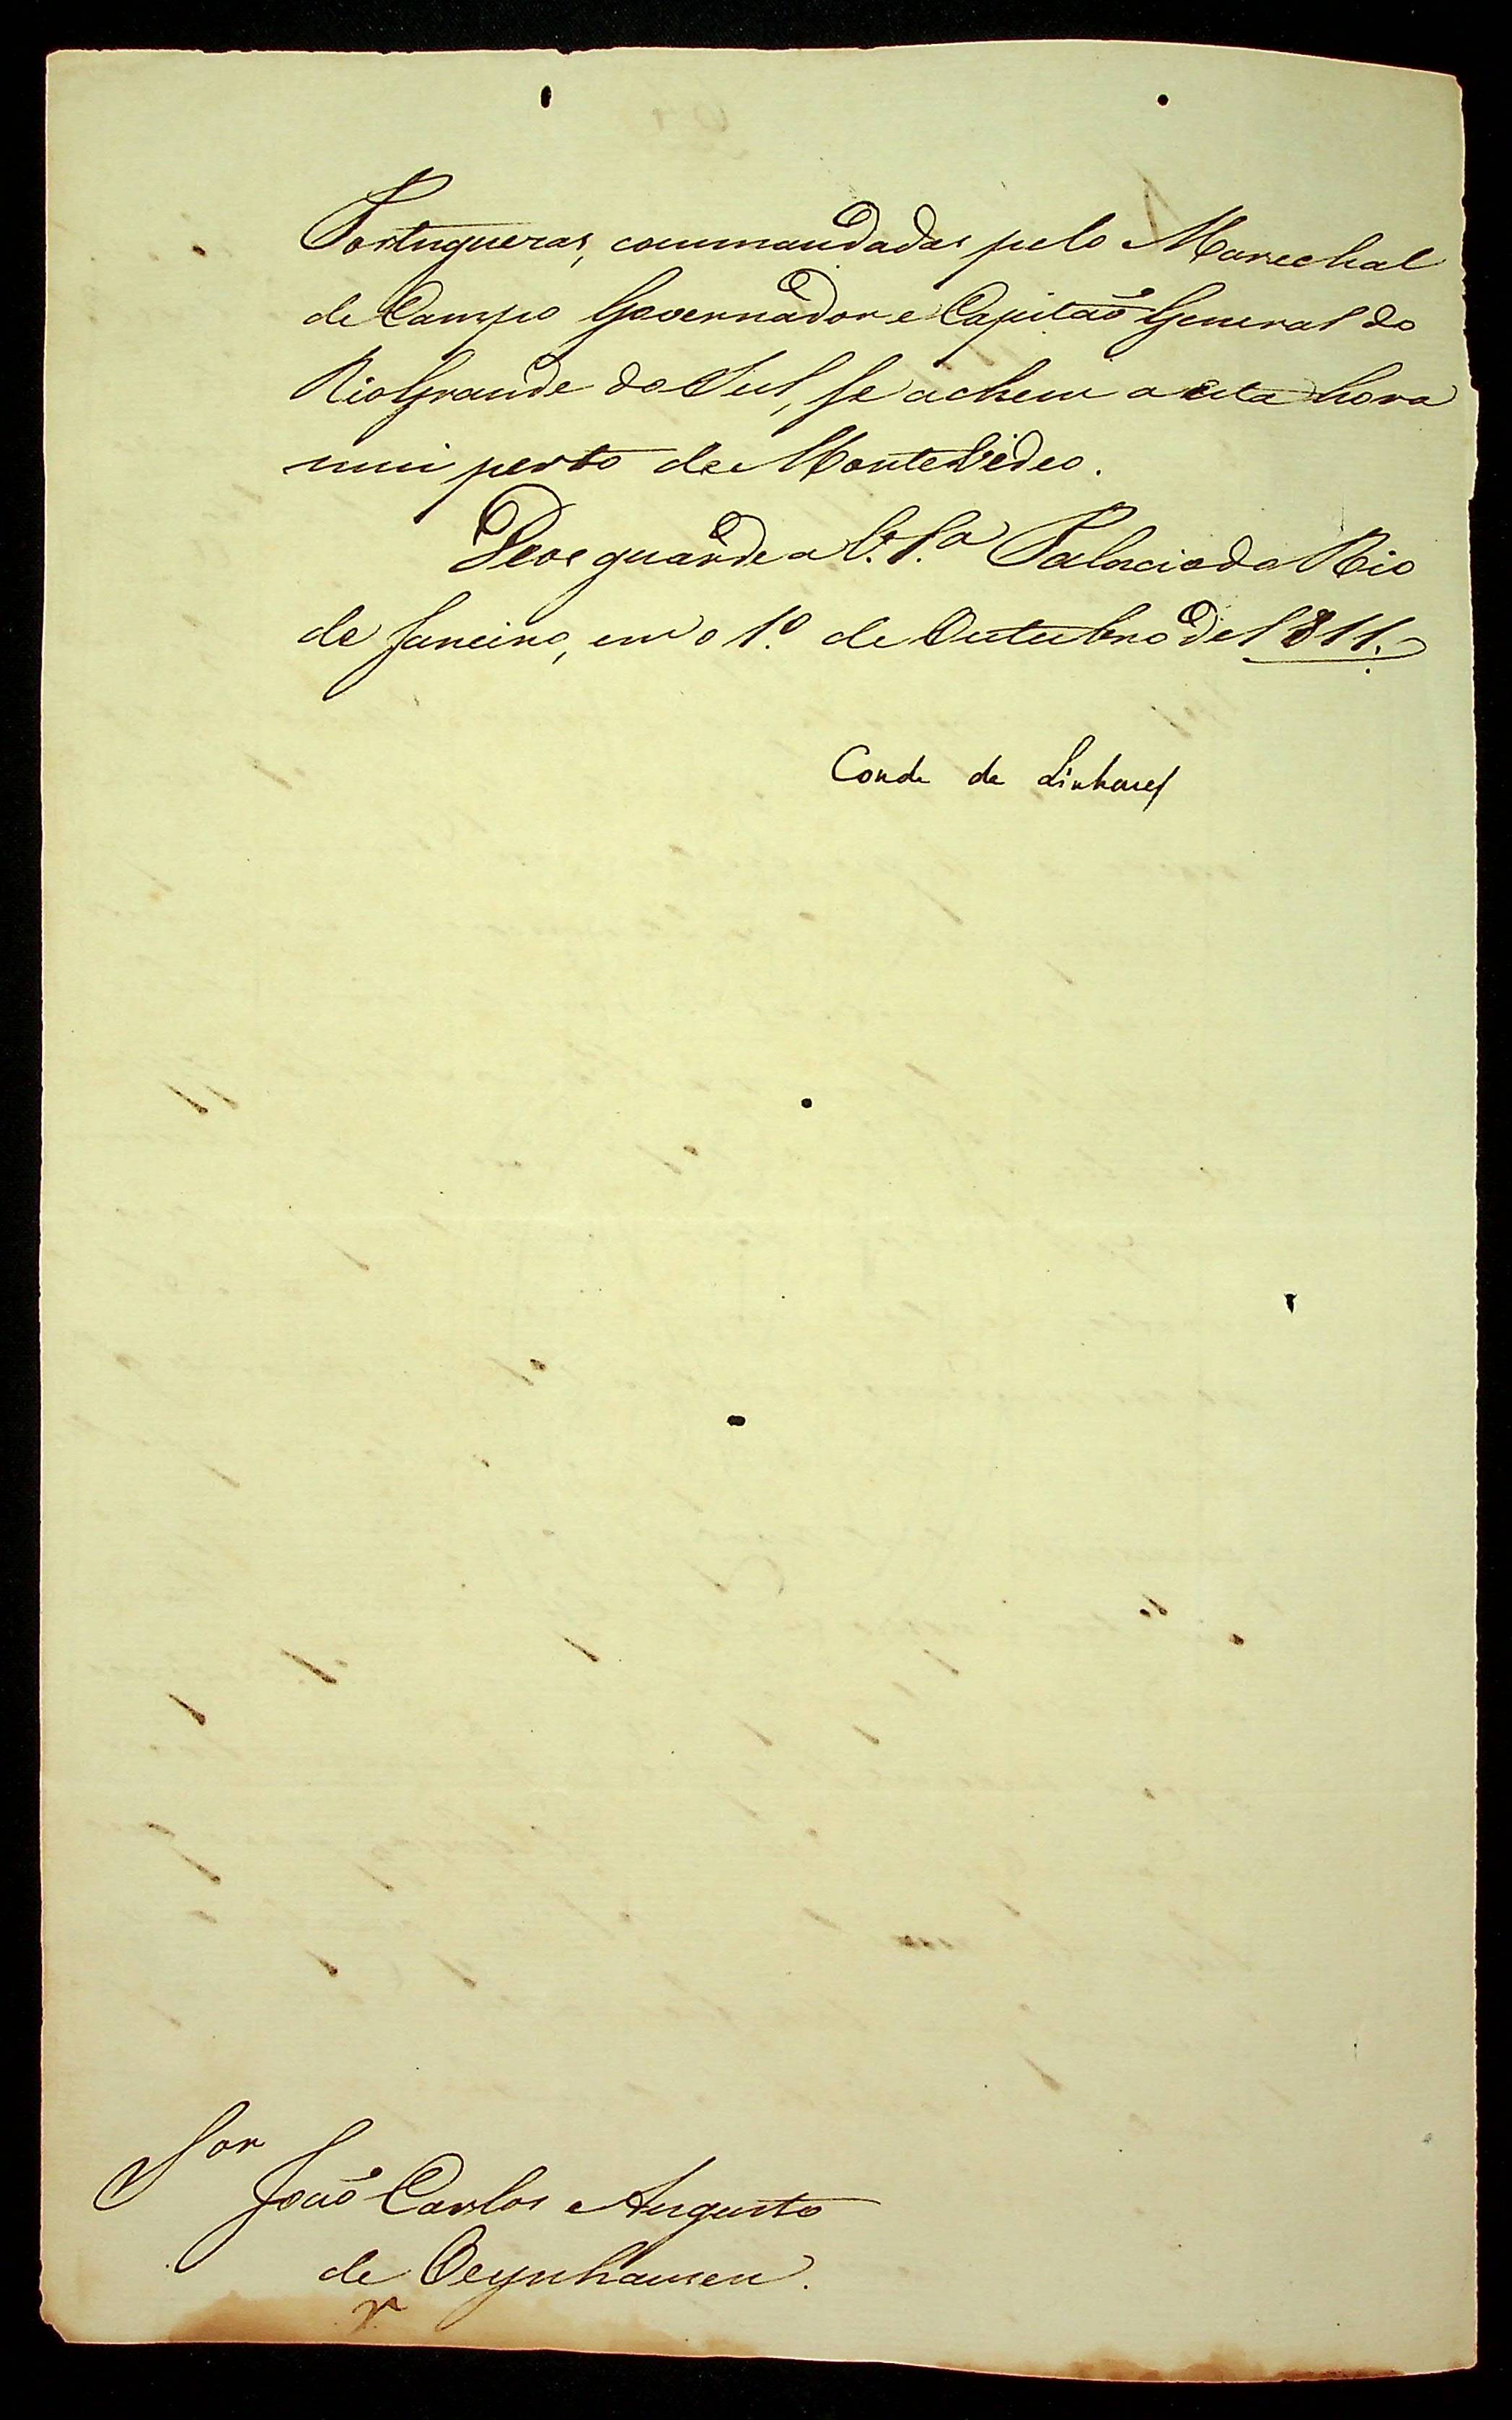 Portuguezas, commandadas pelo Marechal
de Campo Governador e Capitaõ General do
Rio Grande do Sul, se achem a esta hora
mui perto de MonteVideo.
Deos guarde a V. S.ª Palacio do Rio
de Janeiro, em o 1.º de Outubro de 1811.
Conde de Linhares
Sor
Joaõ Carlos Augusto
de Oeynhausen.